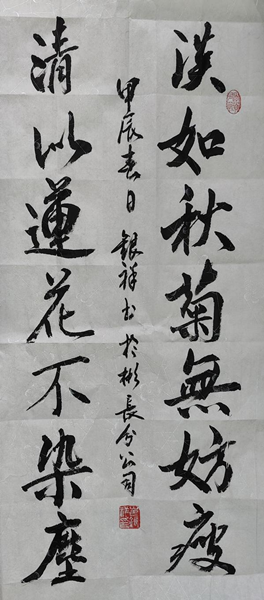 淡如秋菊無妨瘦
清似蓮花不染塵
甲辰春日 銀祥書於彬長分公司